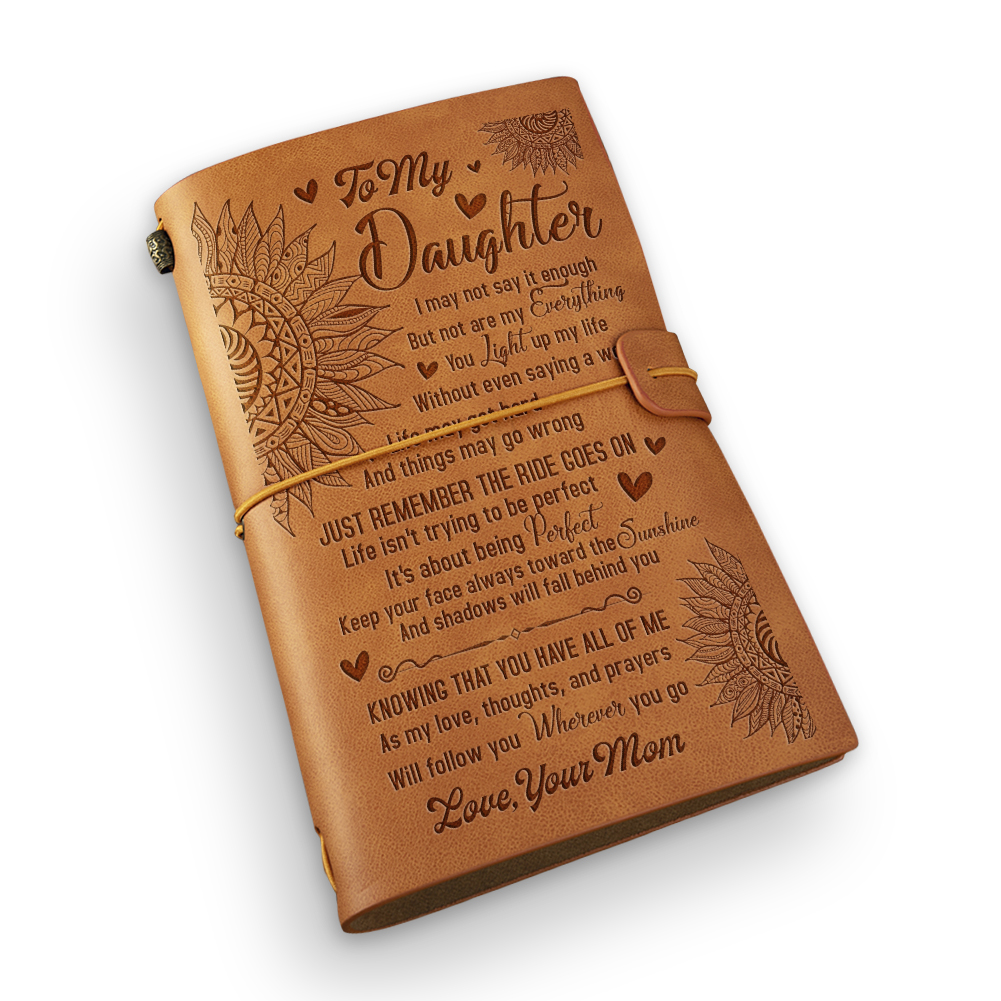 To My
Daughter
I may not say it enough
But not are my Everything
You Light up my life
Without even saying a wo
Life may get hard
And things may go wrong
JUST REMEMBER THE RIDE GOES ON
Life isn't trying to be perfect
It's about being Perfect
Keep your face always toward the Sunshine
And shadows will fall behind you
KNOWING THAT YOU HAVE ALL OF ME
As my love, thoughts, and prayers
Will follow you Wherever you go
Love, Your Mom